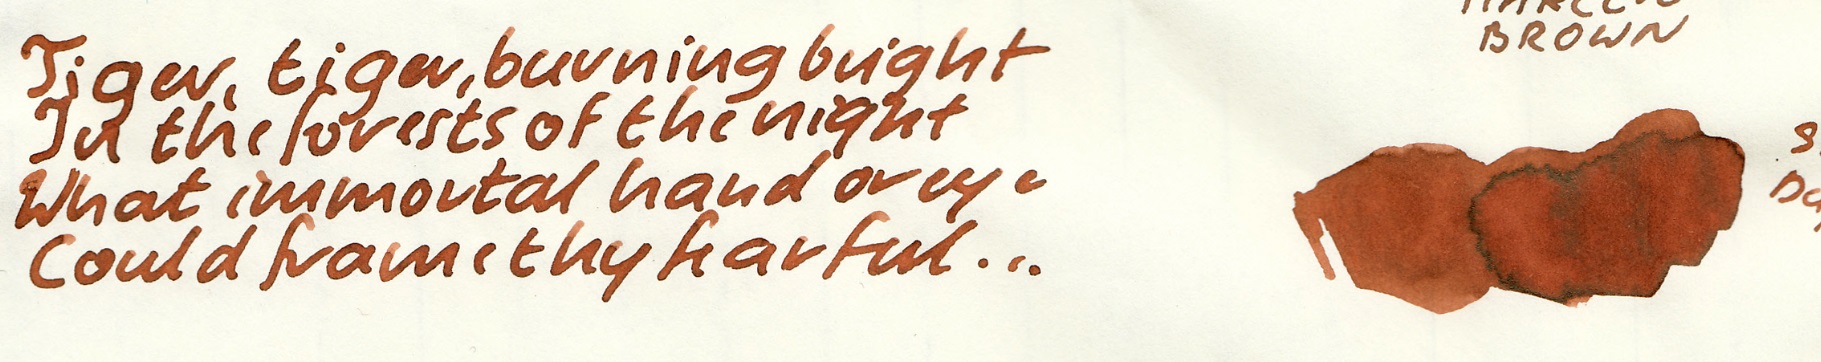 Tiger, tiger, burning bright
In the forests of the night
What immortal hand or eye
Could frame thy fearful...
BROWN